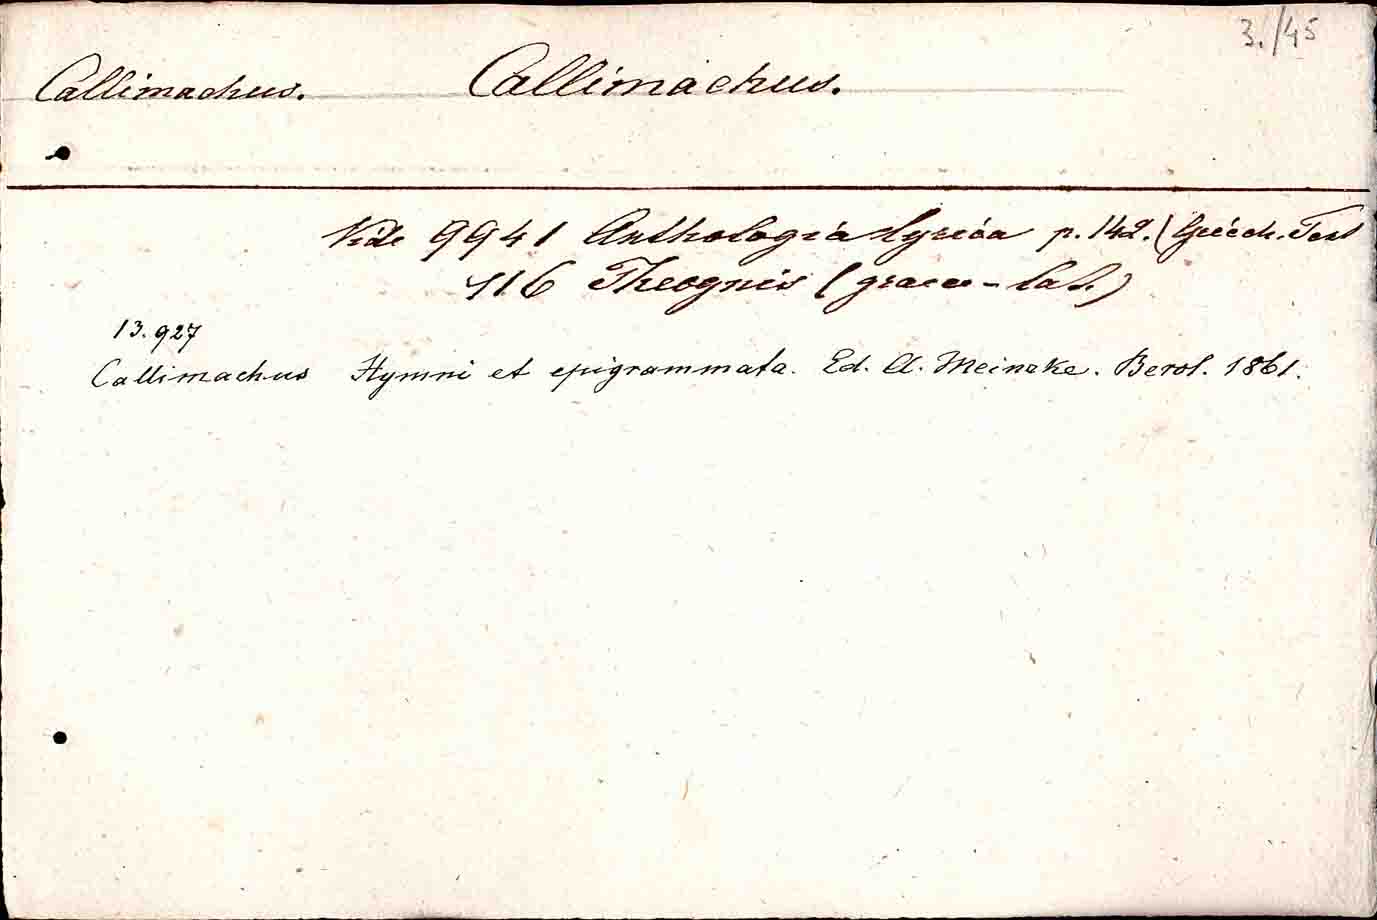 3./45
Callimachus. Callimachus.
Vide 9941 Anthologia lyrica p. 142. (Griech. Text
116 Theognis (graece-lat.)
13.927
Callimachus Hymni et epigrammata. Ed. A. Meineke. Berol. 1861.